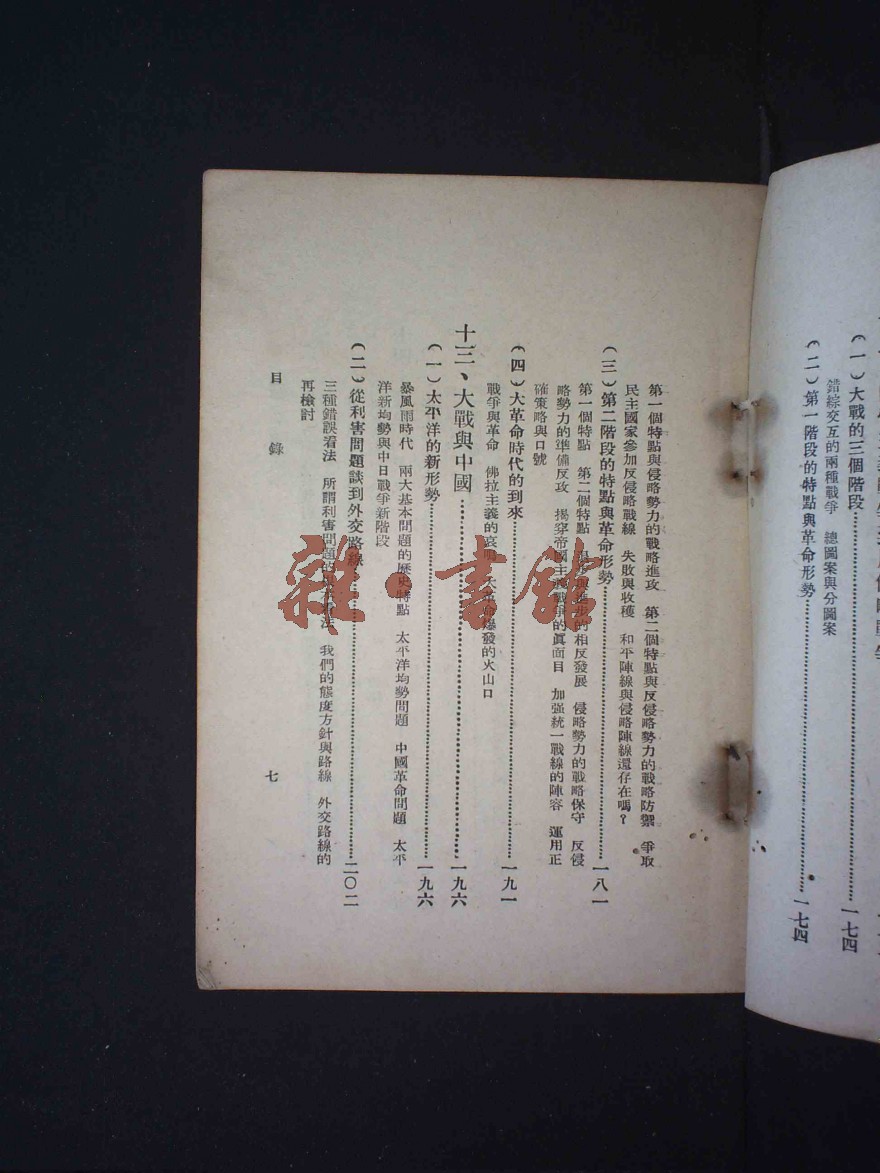 (一)大戰的三個階段……一七四
錯綜交互的兩種戰爭 總圖案與分圖案
(二)第一階段的特點與革命形勢……一七四
第一個特點與侵略勢力的戰略進攻 第二個特點與反侵略勢力的戰略防禦 爭取
民主國家參加反侵略戰線 失敗與收穫 和平陣線與侵略陣線還存在嗎?
(三)第二階段的特點與革命形勢……一八一
第一個特點 第二個特點 進步的相反發展 侵略勢力的戰略保守 反侵
略勢力的準備反攻 揭穿帝國主義戰爭的眞面目 加强統一戰線的陣容 運用正
確策略與口號
(四)大革命時代的到來……一九一
戰爭與革命 佛拉主義的哀鳴 大革命爆發的火山口
十三、大戰與中國……一九六
(一)太平洋的新形勢……一九六
暴風雨時代 兩大基本問題的歷史特點 太平洋均勢問題 中國革命問題 太平
洋新均勢與中日戰爭新階段
(二)從利害問題談到外交路線……二〇二
三種錯誤看法 所謂利害問題的看法 我們的態度方針與路線 外交路線的
再檢討
目錄
七
雜·書館